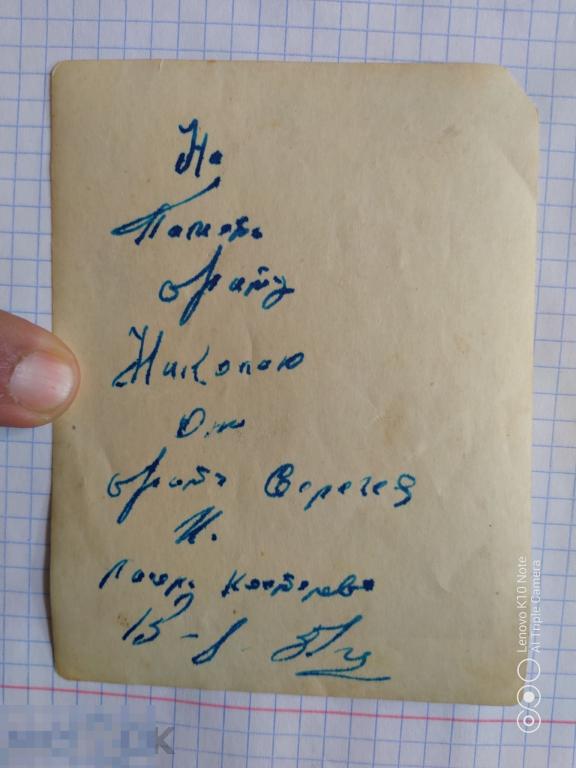 На
Память
брату
Николаю
От
брата Сергея
И.
Лагерь Костерево
15-8-51г
Lenovo K10 Note
AI Triple Camera